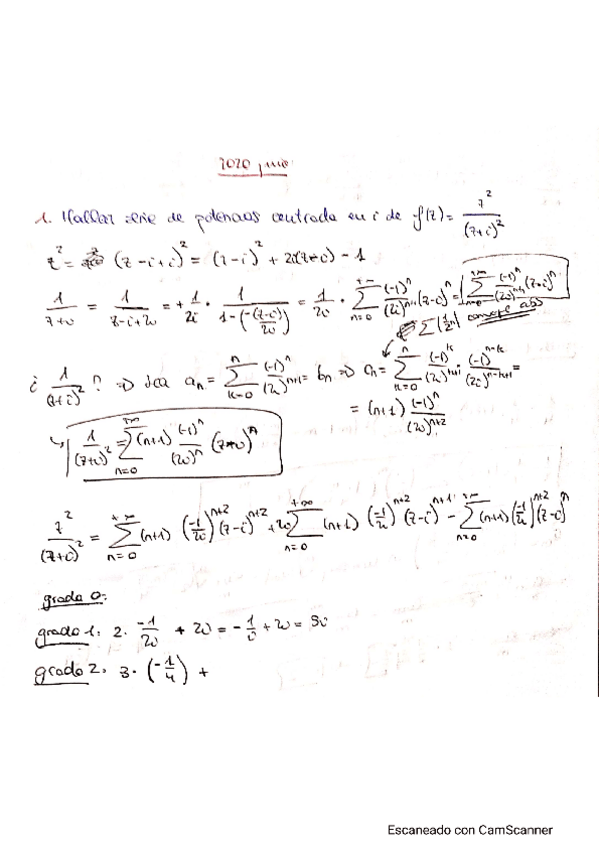 2020 junio
1. Hallar serie de potencias centrada en i de f(z) = z^2/(z+i)^2
z^2 = (z-i+i)^2 = (z-i)^2 + 2i(z-i) - 1
1/(z+i) = 1/(z-i+2i) = + 1/2i · 1/(1-(-(z-i)/2i)) = 1/2i · Σ_{n=0}^{+∞} (-1)^n/(2i)^n · (z-i)^n = Σ_{n=0}^{+∞} (-1)^n/(2i)^{n+1} (z-i)^n
Σ(1/2^n) converge abs
¿ 1/(z+i)^2 ? ⇒ Sea a_n = Σ_{k=0}^{n} (-1)^n/(2i)^{n+1} = b_n ⇒ c_n = Σ_{k=0}^{n} (-1)^k/(2i)^{k+1} · (-1)^{n-k}/(2i)^{n-k+1} =
= (n+1) (-1)^n/(2i)^{n+2}
↳ 1/(z+i)^2 = Σ_{n=0}^{+∞} (n+1) (-1)^n/(2i)^n (z-i)^n
z^2/(z+i)^2 = Σ_{n=0}^{+∞} (n+1) (-1/2i)^{n+2} (z-i)^{n+2} + 2i Σ_{n=0}^{+∞} (n+1) (-1/2i)^{n+2} (z-i)^{n+1} - Σ_{n=0}^{+∞} (n+1) (-1/2i)^{n+2} (z-i)^n
grado 0:
grado 1: 2 · -1/2i + 2i = -1/i + 2i = 3i
grado 2: 3 · (-1/4) +
Escaneado con CamScanner